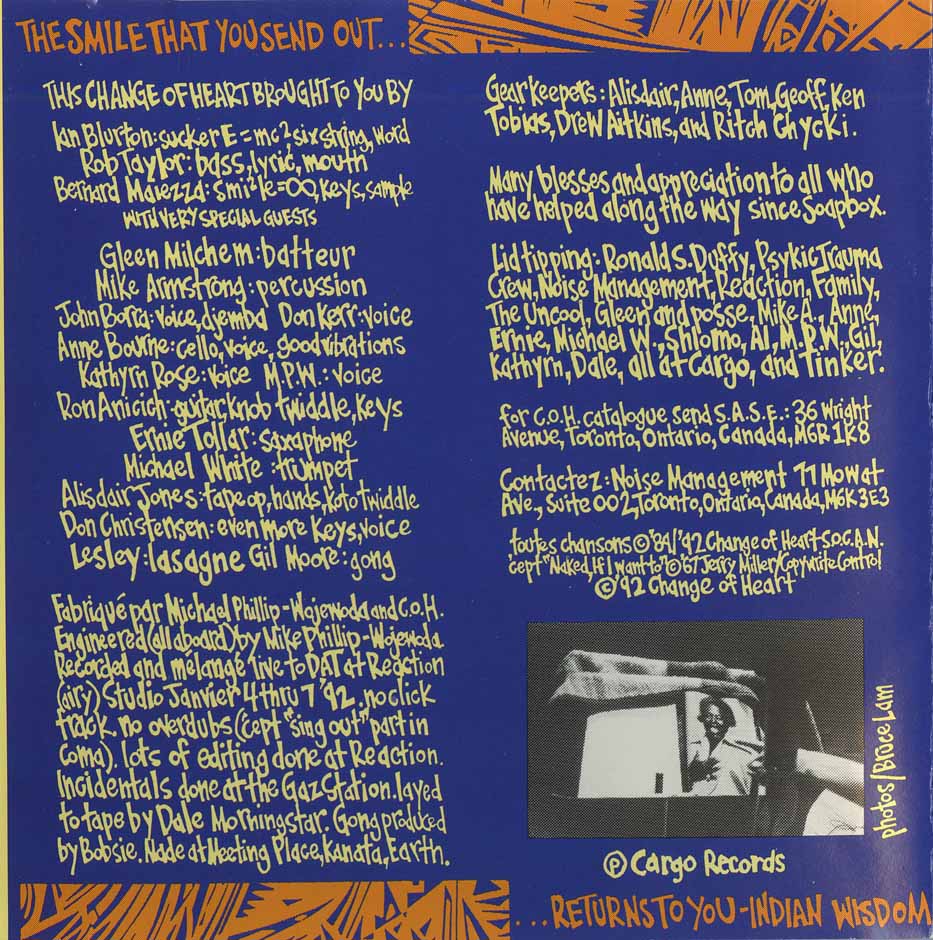 THE SMILE THAT YOU SEND OUT...
THIS CHANGE OF HEART BROUGHT TO YOU BY
Ian Blurton: sucker E=mc², six string, word
Rob Taylor: bass, lyric, mouth
Bernard Maiezza: smi²le=∞, keys, sample
WITH VERY SPECIAL GUESTS
Gleen Milchem: batteur
Mike Armstrong: percussion
John Borra: voice, djemba Don Kerr: voice
Anne Bourne: cello, voice, good vibrations
Kathyrn Rose: voice M.P.W.: voice
Ron Anicich: guitar, knob twiddle, keys
Ernie Tollar: saxaphone
Michael White: trumpet
Alisdair Jones: tape op, hands, koto twiddle
Don Christensen: even more keys, voice
Lesley: lasagne Gil Moore: gong
Fabriqué par Michael Phillip-Wojewoda and C.O.H.
Engineered (all aboard) by Mike Phillip-Wojewoda
Recorded and mélange live to DAT at Reaction
(airy) Studio Janvier 4 thru 7 '92. no click
track. no overdubs (cept "sing out" part in
Coma). lots of editing done at Reaction.
Incidentals done at the Gaz Station. layed
to tape by Dale Morningstar. Gong produced
by Bobsie. Made at Meeting Place, Kanata, Earth.
Gear keepers: Alisdair, Anne, Tom, Geoff, Ken
Tobias, Drew Aitkins, and Ritch Chycki.
Many blesses and appreciation to all who
have helped along the way since Soapbox.
Lid tipping: Ronald S. Duffy, Psykic Trauma
Crew, Noise Management, Reaction, Family,
The Uncool, Gleen and posse, Mike A., Anne,
Ernie, Michael W., Shlomo, Al, M.P.W., Gil,
Kathyrn, Dale, all at Cargo, and Tinker.
for C.O.H. catalogue send S.A.S.E.: 36 Wright
Avenue, Toronto, Ontario, Canada, M6R 1K8
Contactez: Noise Management 77 Mowat
Ave., Suite 002, Toronto, Ontario, Canada, M6K 3E3
toutes chansons © '84/'92 Change of Heart S.O.C.A.N.
cept "Naked, If I want to" © '67 Jerry Miller/Copywrite Control
© '92 Change of Heart
photos/Bruce Lam
℗ Cargo Records
...RETURNS TO YOU-INDIAN WISDOM